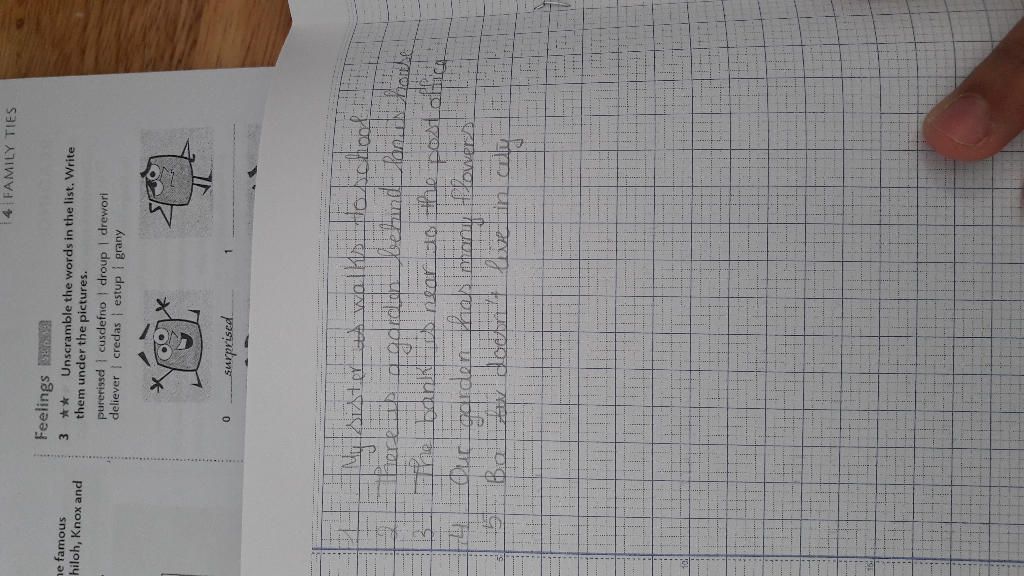 4 | FAMILY TIES
Feelings
3 ★★ Unscramble the words in the list. Write
them under the pictures.
purerissd | cusdefno | droup | drewori
deliever | credas | estup | grany
0 surprised
1
he famous
hiloh, Knox and
1 My sister is walks to school
2 There is a gardan behind house
3 The bank is near to the post office
4 Our garden has many flowers
5 Ba doesn't live in city
5
10
15